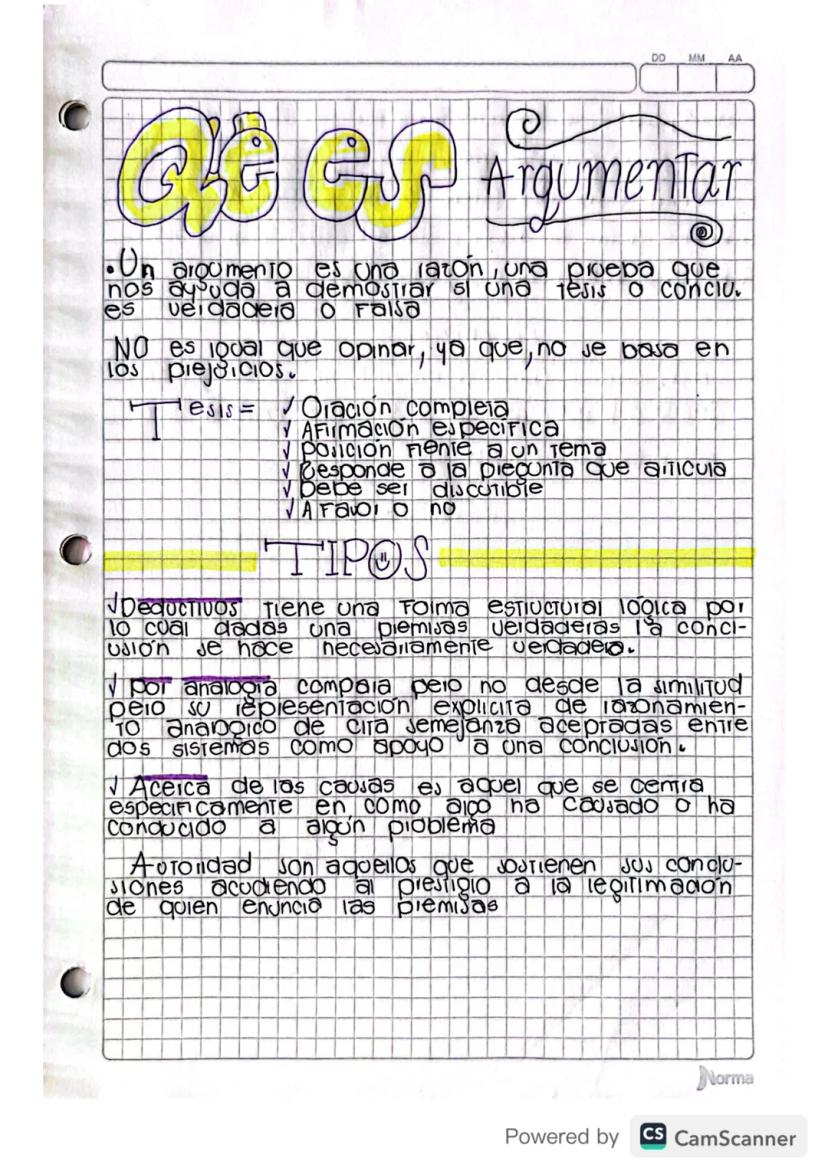 DD MM AA
Qué es Argumentar
•Un argumento es una razón, una prueba que
nos ayuda a demostrar si una tesis o conclu.
es verdadera o falsa
NO es igual que opinar, ya que, no se basa en
los prejuicios.
Tesis= ✓ Oración completa
✓ Afirmación específica
✓ Posición frente a un tema
✓ Responde a la pregunta que articula
✓ Debe ser discutible
✓ A favor o no
TIPOS
✓Deductivos tiene una forma estructural lógica por
lo cual dadas una premisas verdaderas la concl-
usión se hace necesariamente verdadera.
✓ por analogía compara pero no desde la similitud
pero su representación explicita de razonamien-
to analogico de cita semejanza aceptadas entre
dos sistemas como apoyo a una conclusión.
✓ Acerca de las causas es aquel que se centra
específicamente en como algo ha causado o ha
conducido a algún problema
Autoridad son aquellos que sostienen sus conclu-
siones acudiendo al prestigio a la legitimación
de quien enuncia las premisas
Norma
Powered by CS CamScanner